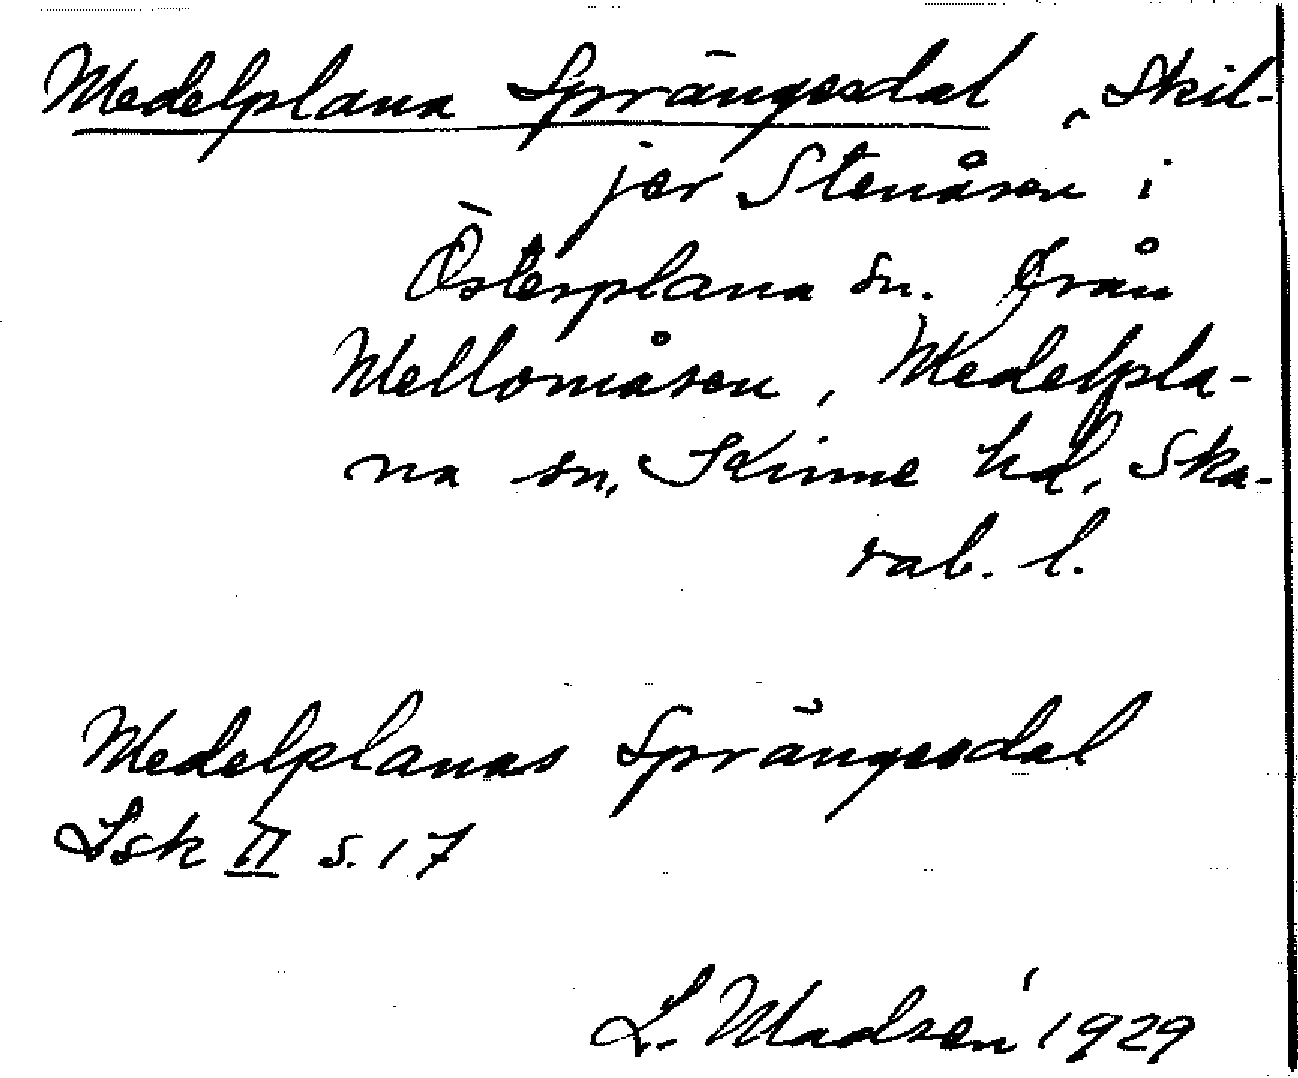 Medelplana Sprängesdal, Skil-
jer Stenåsen i
Österplana sn. från
Mellomåsen, Medelpla-
na sn, Kinne hd, Ska-
rab. l.
Medelplanas Sprängesdal
Isk II s. 17
L. Madsen 1929